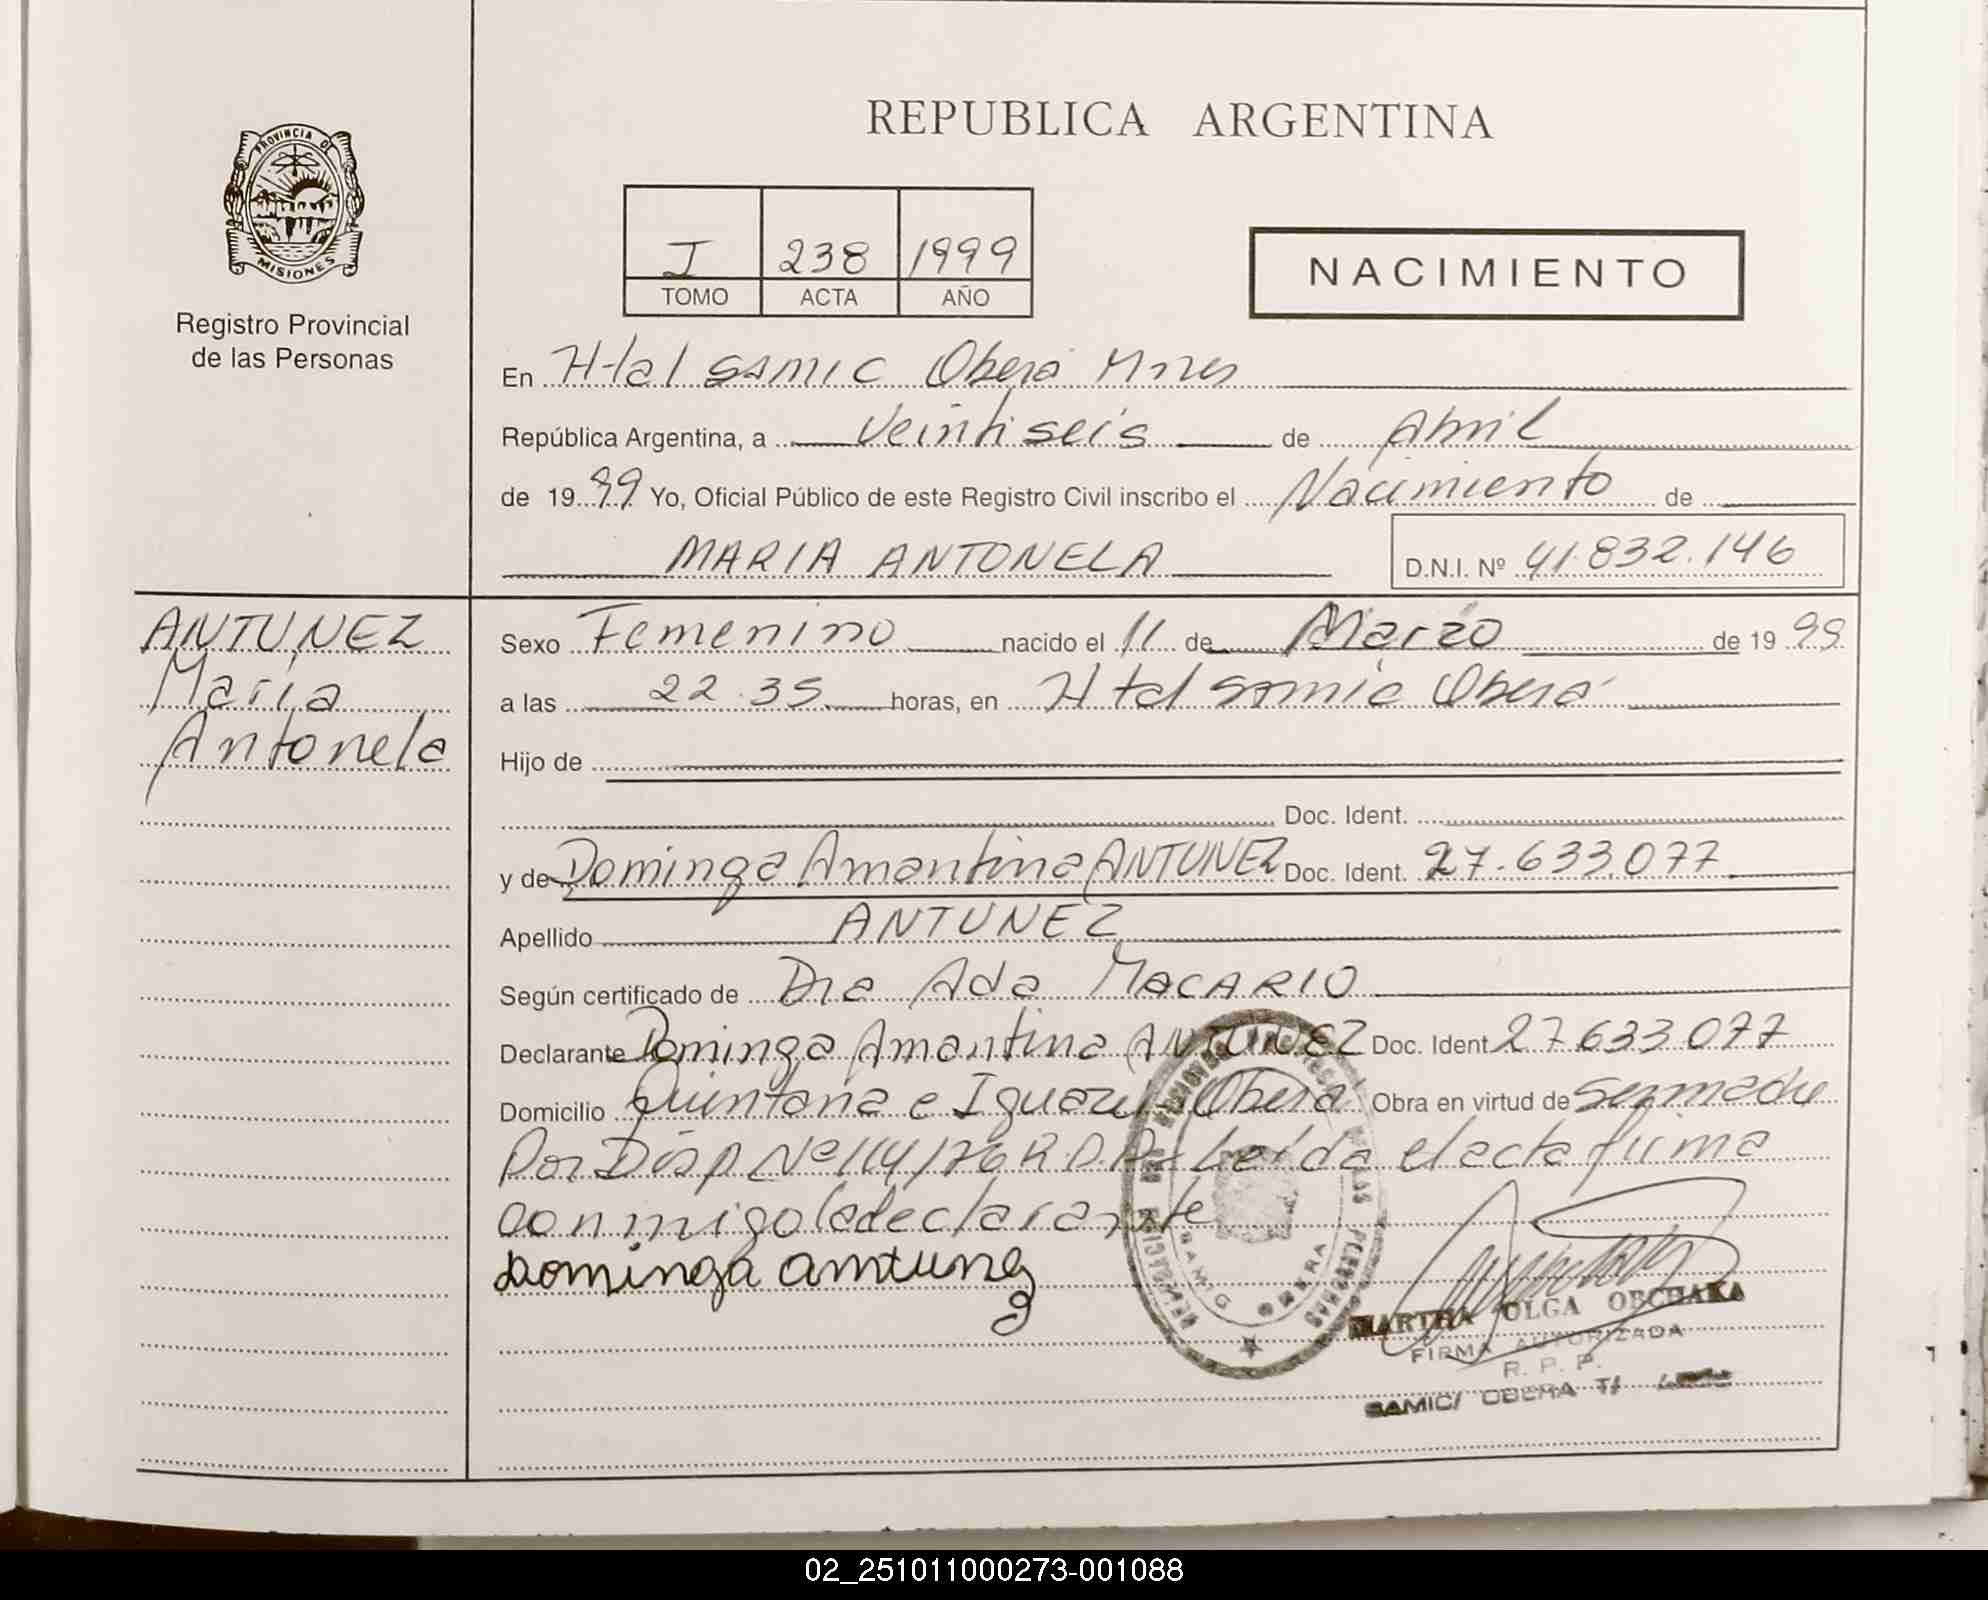 REPUBLICA ARGENTINA
PROVINCIA DE
MISIONES
Registro Provincial
de las Personas
I 238 1999
TOMO ACTA AÑO
NACIMIENTO
En Htal SAMIC Oberá Mnes
República Argentina, a veintiseis de Abril
de 1999 Yo, Oficial Público de este Registro Civil inscribo el Nacimiento de
MARIA ANTONELA D.N.I. Nº 41.832.146
ANTUNEZ
Maria
Antonela
Sexo Femenino nacido el 11 de Marzo de 1999
a las 22.35 horas, en Htal Samic Oberá
Hijo de
Doc. Ident.
y de Dominga Amantina ANTUNEZ Doc. Ident. 27.633.077
Apellido ANTUNEZ
Según certificado de Dra Ada MACARIO
Declarante Dominga Amantina ANTUNEZ Doc. Ident 27.633.077
Domicilio Quintana e Iguazu Oberá Obra en virtud de ser madre
Por Disp Nº 114/76 R.P.P. Leída el acta firma
conmigo la declarante
Dominga Amtunez
REGISTRO PROVINCIAL DE LAS PERSONAS
SAMIC OBERA
MARTHA OLGA OBCHAKA
FIRMA AUTORIZADA
R. P. P.
SAMIC/ OBERA
02_251011000273-001088